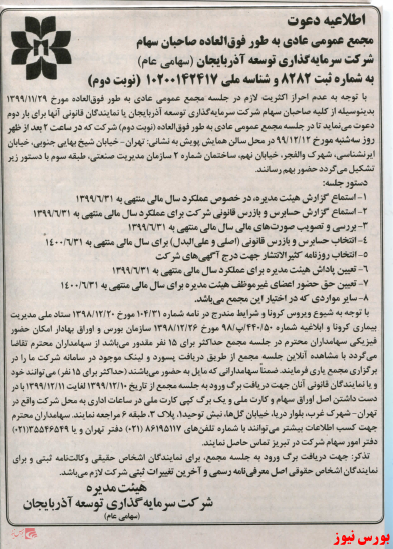 اطلاعیه دعوت
مجمع عمومی عادی به طور فوق‌العاده صاحبان سهام
شرکت سرمایه‌گذاری توسعه آذربایجان (سهامی عام)
به شماره ثبت ۸۲۸۲ و شناسه ملی ۱۰۲۰۰۱۴۲۴۱۷ (نوبت دوم)
با توجه به عدم احراز اکثریت لازم در جلسه مجمع عمومی عادی به طور فوق‌العاده مورخ ۱۳۹۹/۱۱/۲۹
بدینوسیله از کلیه صاحبان سهام شرکت سرمایه‌گذاری توسعه آذربایجان یا نمایندگان قانونی آنها برای بار دوم
دعوت می‌نماید تا در جلسه مجمع عمومی عادی به طور فوق‌العاده (نوبت دوم) شرکت که در ساعت ۲ بعد از ظهر
روز سه‌شنبه مورخ ۹۹/۱۲/۱۲ در محل سالن همایش پویش به نشانی: تهران - خیابان شیخ بهایی جنوبی، خیابان
ایرشناسی، شهرک والفجر، خیابان نهم، ساختمان شماره ۲ سازمان مدیریت صنعتی، طبقه سوم با دستور زیر
تشکیل می‌گردد حضور بهم رسانند.
دستور جلسه:
۱- استماع گزارش هیئت مدیره، در خصوص عملکرد سال مالی منتهی به ۱۳۹۹/۶/۳۱
۲- استماع گزارش حسابرس و بازرس قانونی شرکت برای عملکرد سال مالی منتهی به ۱۳۹۹/۶/۳۱
۳- بررسی و تصویب صورت‌های مالی سال مالی منتهی به ۱۳۹۹/۶/۳۱
۴- انتخاب حسابرس و بازرس قانونی (اصلی و علی‌البدل) برای سال مالی منتهی به ۱۴۰۰/۶/۳۱
۵- انتخاب روزنامه کثیرالانتشار جهت درج آگهی‌های شرکت
۶- تعیین پاداش هیئت مدیره برای عملکرد سال مالی منتهی به ۱۳۹۹/۶/۳۱
۷- تعیین حق حضور اعضای غیرموظف هیئت مدیره برای سال مالی منتهی به ۱۴۰۰/۶/۳۱
۸- سایر مواردی که در اختیار این مجمع می‌باشد.
با توجه به شیوع ویروس کرونا و شرایط مندرج در نامه شماره ۱۰۴/۳۱ مورخ ۱۳۹۸/۱۲/۲۰ ستاد ملی مدیریت
بیماری کرونا و ابلاغیه شماره ۴۴۰/۵۰/ب/۹۸ مورخ ۱۳۹۸/۱۲/۲۶ سازمان بورس و اوراق بهادار امکان حضور
فیزیکی سهامداران محترم در جلسه مجمع حداکثر برای ۱۵ نفر مقدور می‌باشد از سهامداران محترم تقاضا
می‌گردد با مشاهده آنلاین جلسه مجمع از طریق دریافت پسورد و لینک موجود در سامانه شرکت ما را در
برگزاری مجمع یاری فرمایند. ضمناً سهامدارانی که مایل به حضور می‌باشند (حداکثر برای ۱۵ نفر) می‌توانند خود
و یا نمایندگان قانونی آنان جهت دریافت برگ ورود به جلسه مجمع از تاریخ ۹۹/۱۲/۱۰ لغایت ۹۹/۱۲/۱۱ با در
دست داشتن اصل اوراق سهام و کارت ملی و یک برگ کپی کارت ملی در ساعات اداری به محل شرکت واقع در
تهران - شهرک غرب، بلوار دریا، خیابان گل‌ها، نبش توحید۱، پلاک ۳، طبقه ۶ مراجعه نمایند. سهامداران محترم
جهت کسب اطلاعات بیشتر می‌توانند با شماره تلفن‌های ۸۶۱۹۵۱۱۷ (۰۲۱) دفتر تهران و یا ۳۵۵۴۶۵۴۹ (۰۴۱)
دفتر امور سهام شرکت در تبریز تماس حاصل نمایند.
تذکر: جهت دریافت برگ ورود به جلسه مجمع، برای نمایندگان اشخاص حقیقی وکالت‌نامه ثبتی و برای
نمایندگان اشخاص حقوقی اصل معرفی‌نامه رسمی و آخرین تغییرات ثبتی شرکت لازم می‌باشد.
هیئت مدیره
شرکت سرمایه‌گذاری توسعه آذربایجان
(سهامی عام)
بورس نیوز